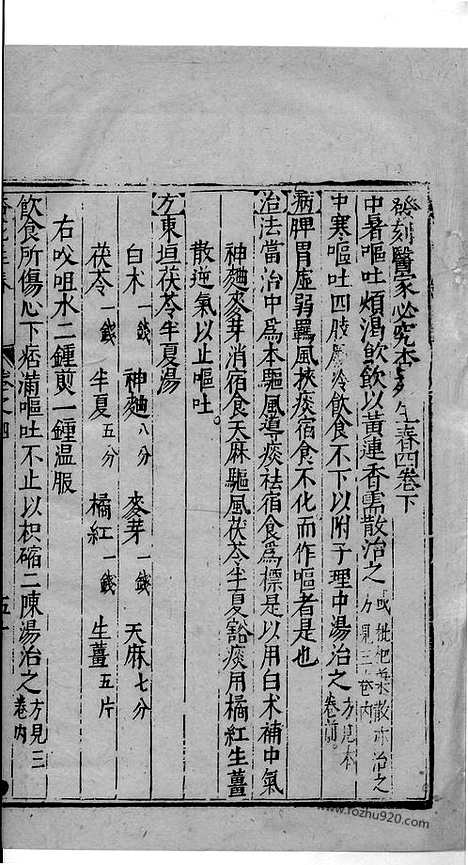 發刻醫家必究本生春四卷下
中暑嘔吐煩渴飲飲以黃連香需散治之或枇杷葉散亦治之方見三卷內
中寒嘔吐四肢厥冷飲食不下以附子理中湯治之方見本卷前。
病脾胃虛弱羈風挾痰宿食不化而作嘔者是也
治法當治中為本驅風導痰祛宿食為標是以用白朮補中氣
神麯麥芽消宿食天麻驅風茯苓半夏豁痰用橘紅生薑
散逆氣以止嘔吐。
方東垣茯苓半夏湯
白朮一錢 神麯八分 麥芽一錢 天麻七分
茯苓一錢 半夏五分 橘紅一錢 生薑五片
右㕮咀水二鍾煎一鍾温服
飲食所傷心下痞滿嘔吐不止以枳縮二陳湯治之方見三卷內
卷之四
五十
www.fozhu920.com